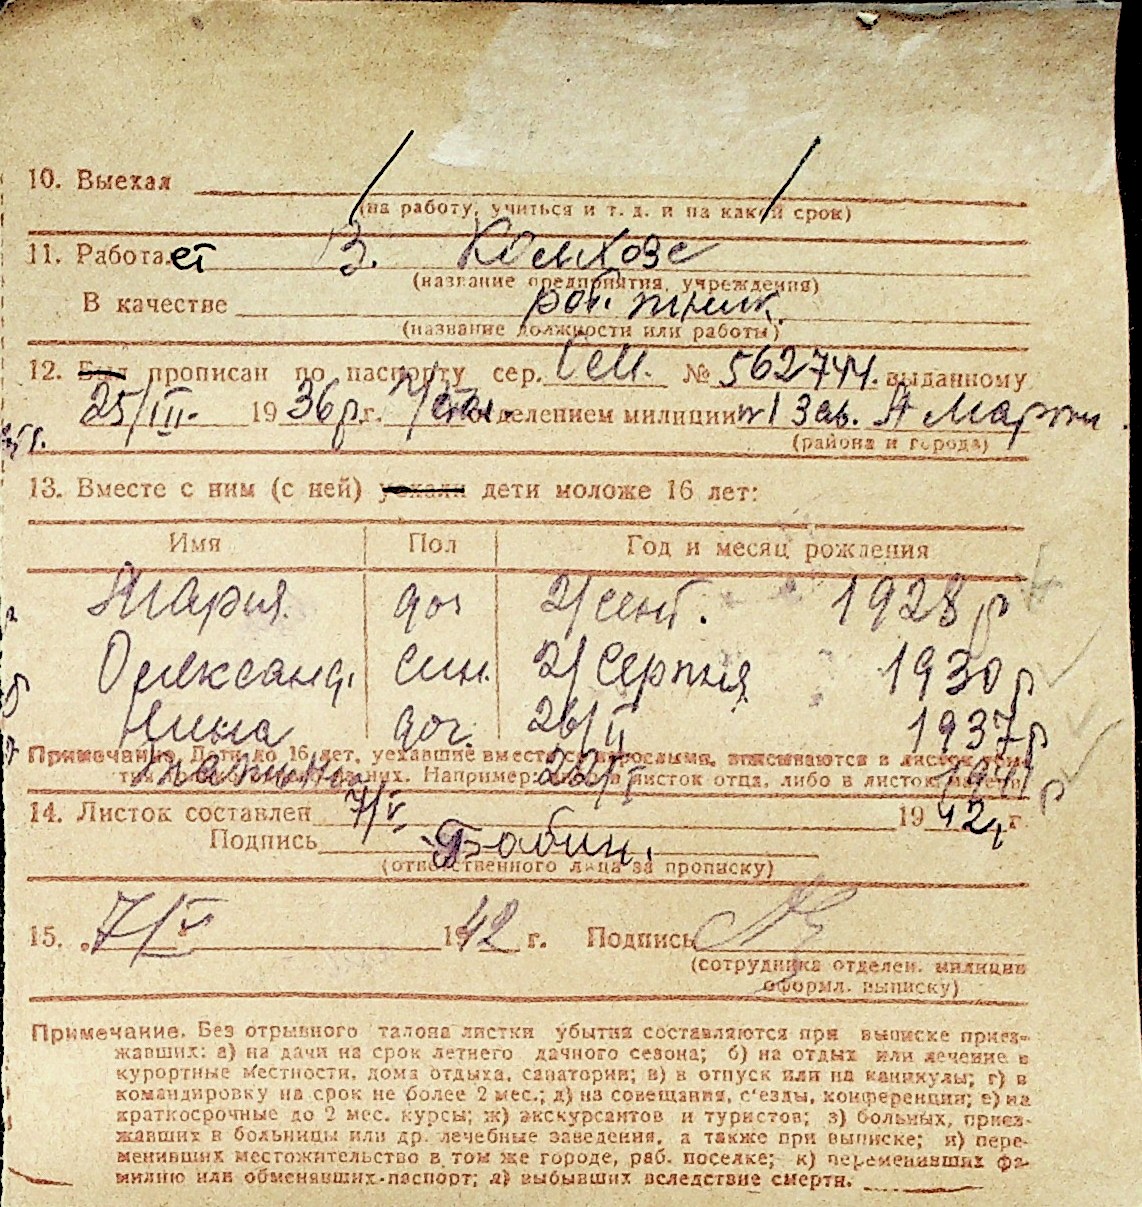 10. Выехал
(на работу, учиться и т. д. и на какой срок)
11. Работает В. Колхозе
(название предприятия, учреждения)
В качестве роб.
(название должности или работы)
12. Был прописан по паспорту сер. № 562744. выданному
25/III. 1936р.г. отделением милиции
(района и города)
13. Вместе с ним (с ней) уехали дети моложе 16 лет:
Имя Пол Год и месяц рождения
Мария доч 2/сент. 1928 р
Олександ. син. 2/Серпня 1930 р
Нина доч. 26/II 1937 р
Примечание. Дети до 16 лет, уехавшие вместе со взрослыми, вписываются в листок
Например: либо в листок отца, либо в листок матери
22/I
14. Листок составлен 7/V. 1942 г.
Подпись Бабин.
(ответственного лица за прописку)
15. 7/V 1942 г. Подпись
(сотрудника отделен. милиции
оформл. выписку)
Примечание. Без отрывного талона листки убытия составляются при выписке приез-
жавших: а) на дачи на срок летнего дачного сезона; б) на отдых или лечение в
курортные местности, дома отдыха, санатории; в) в отпуск или на каникулы; г) в
командировку на срок не более 2 мес.; д) на совещания, с'езды, конференции; е) на
краткосрочные до 2 мес. курсы; ж) экскурсантов и туристов; з) больных, приез-
жавших в больницы или др. лечебные заведения, а также при выписке; и) пере-
менивших местожительство в том же городе, раб. поселке; к) переменивших фа-
милию или обменявших-паспорт; л) выбывших вследствие смерти.